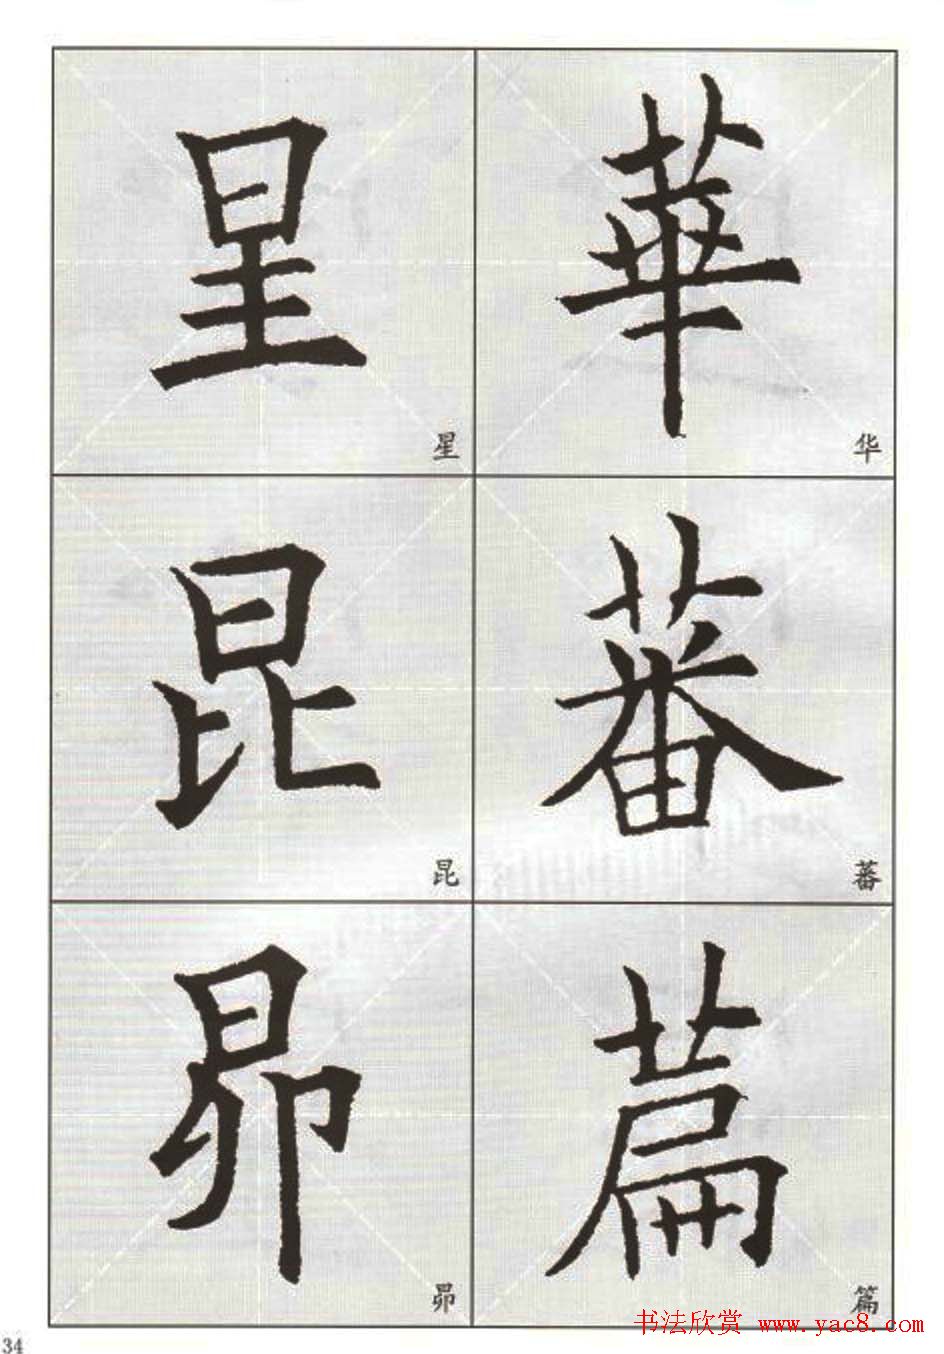 華
华
蕃
蕃
萹
篇
星
星
昆
昆
昴
昴
34
书法欣赏 www.yac8.com